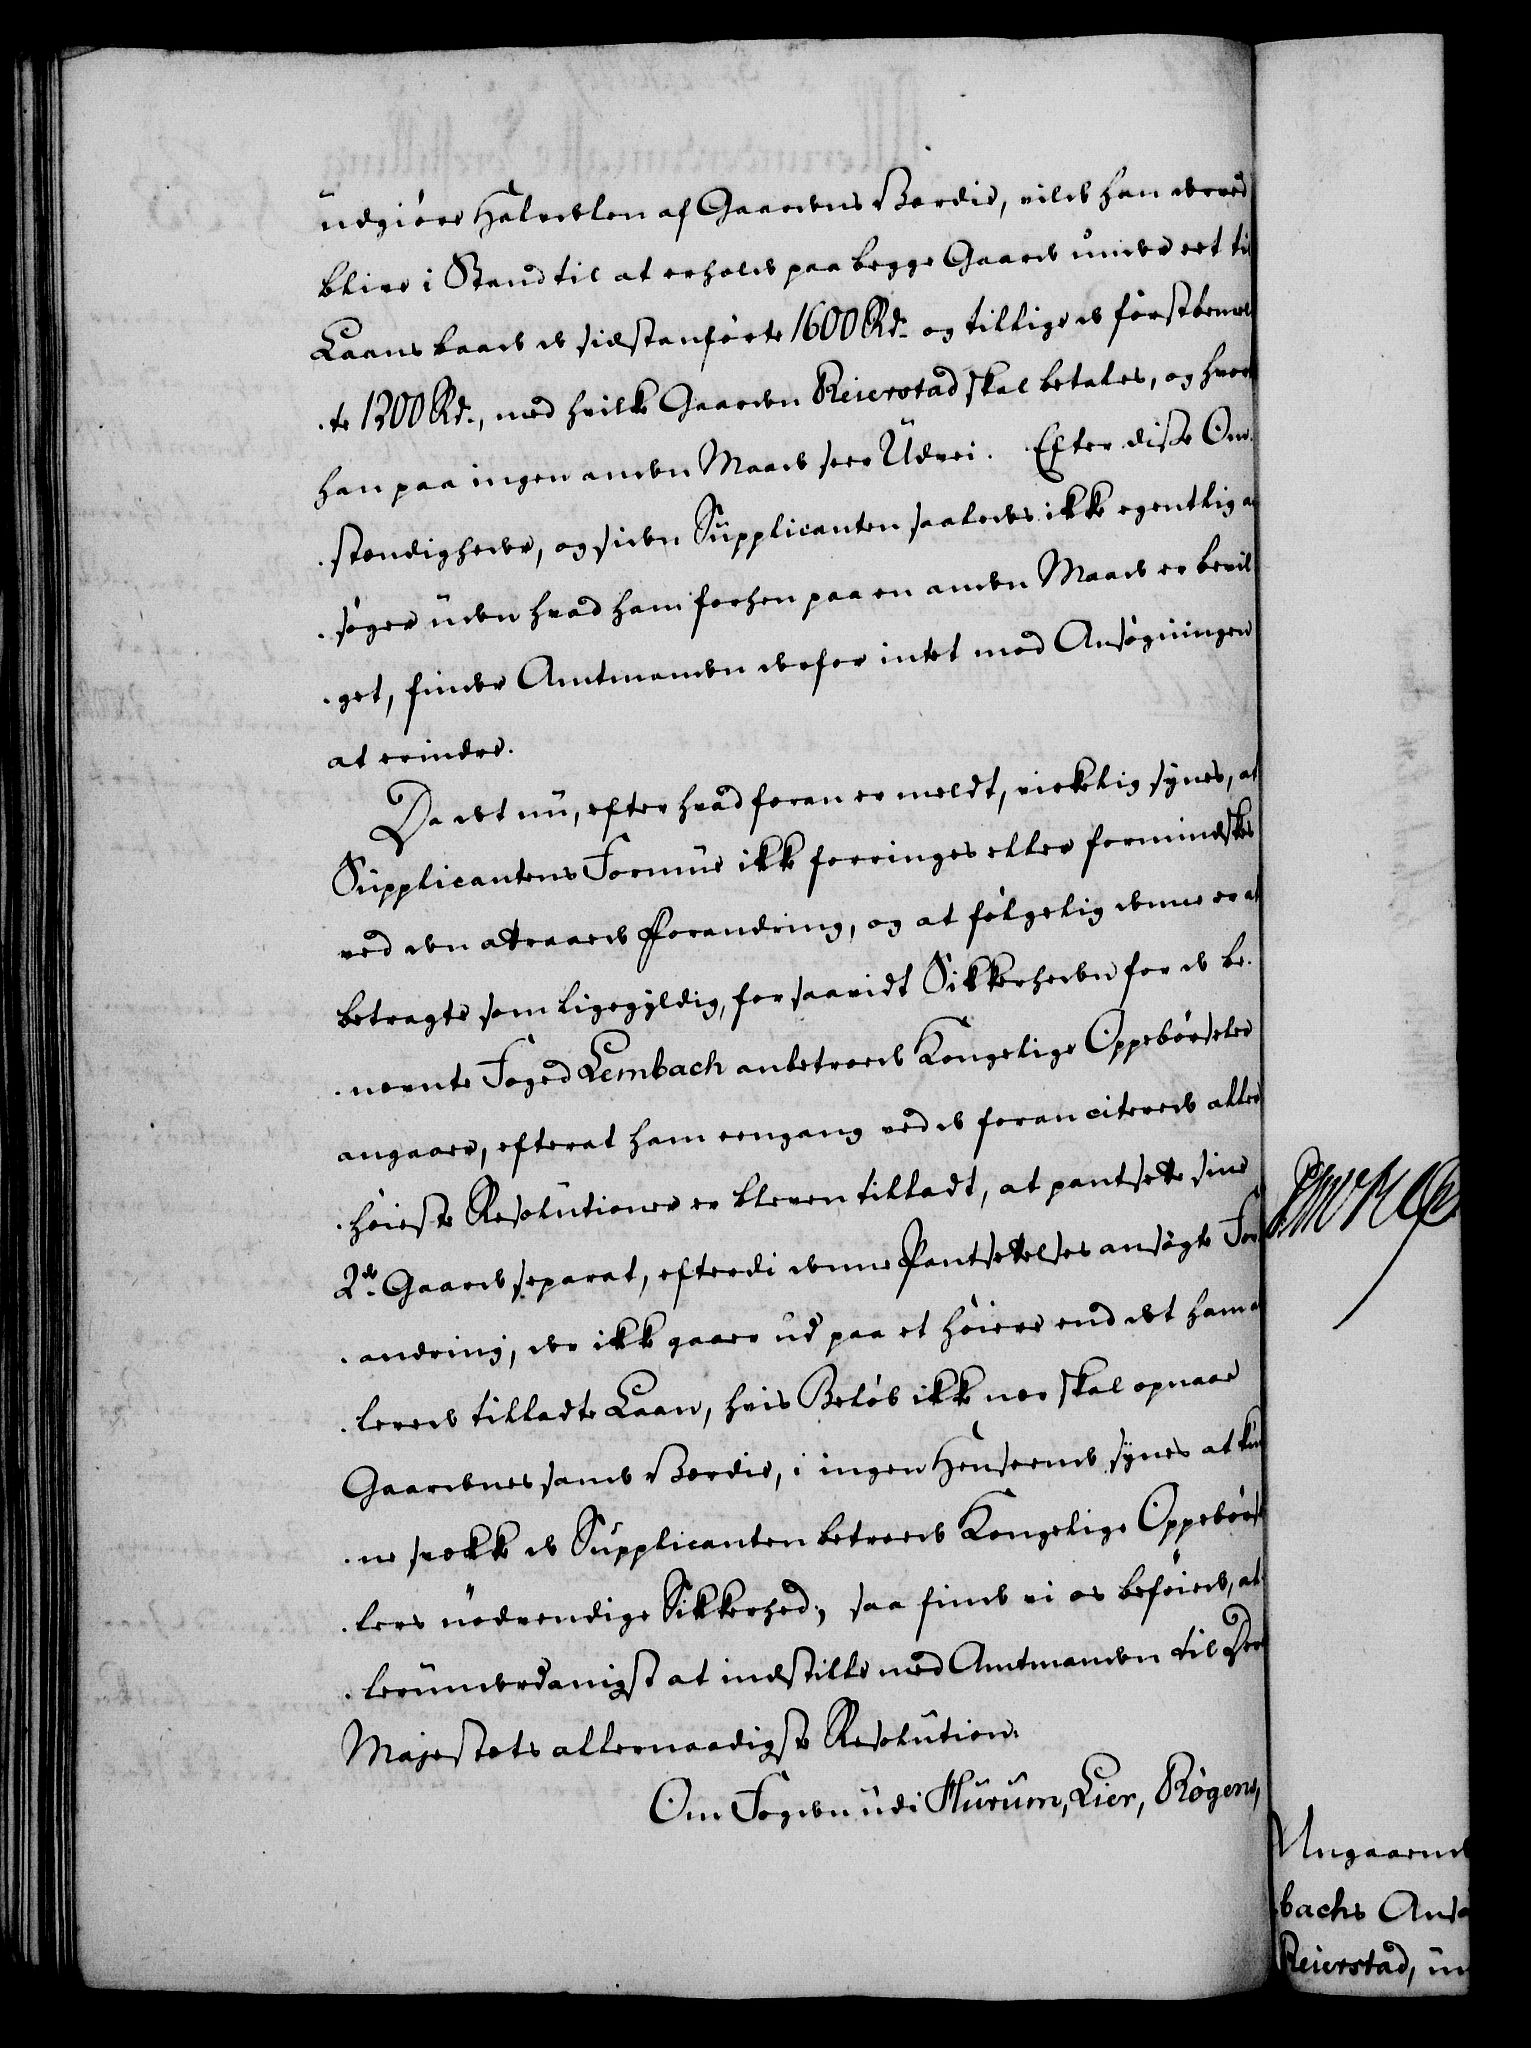 udgiöre Halvdelen af Gaardens Værdie, vilde han derved
blive i Stand til at erholde paa begge Gaarde under eet til
Laans baade de sidstanförte 1600 Rd. og tillige de förstbemel
te 1300 Rd., med hvilke Gaarden Reierstad skal betales, og hvortil
han paa ingen anden Maade seer Udvei. Efter disse Om-
stændigheder, og siden Supplicanten saaledes ikke egentlig an
söger uden hvad ham forhen paa en anden Maade er bevil
get, finder Amtmanden derfor intet mod Ansögningen
at erindre.
Da det nu, efter hvad foran er meldt, virkelig synes, at
Supplicantens Formue ikke forringes eller formindskes
ved den attraaede Forandring, og at fölgelig denne er at
betragte som ligegyldig, forsaavidt Sikkerheden for de be-
nævnte Foged Lembach anbetroede Kongelige Oppebörseler
angaaer, efterat ham eengang ved de foran citerede aller
höieste Resolutioner er bleven tilladt, at pantsette sine
2de Gaarde separat, efterdi denne Pantsettelses ansögte For
andring, der ikke gaaer ud paa et höiere end det ham al
lerede tilladte Laan, hvis Belöb ikke nær skal opnaae
Gaardenes sande Værdie, i ingen Henseende synes at kun
ne svække de Supplicanten betroede Kongelige Oppebörse
lers nödvendige Sikkerhed; saa finde vi os beföiede, al
lerunderdanigst at indstille med Amtmanden til Deres
Majestæts allernaadigste Resolution:
Om Fogden udi Hurum, Lier, Rögens,
Angaaende
bachs Ansö
Reierstad, un